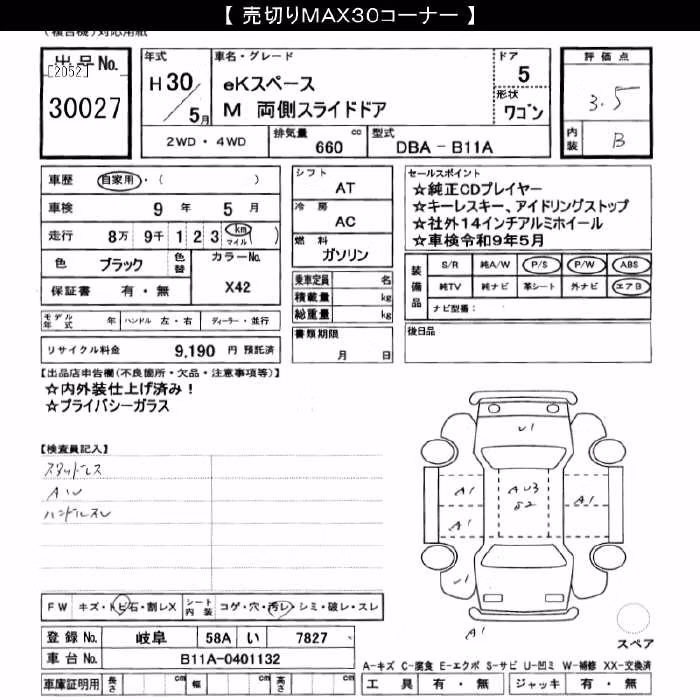 【 売切りMAX30コーナー 】
(複合機)対応用紙
出品No.
[2052]
30027
年式
H30/5月
車名・グレード
eKスペース
M 両側スライドドア
ドア
5
形状
ワゴン
評価点
3.5
内装
B
2WD・4WD
排気量
660 cc
型式
DBA - B11A
車歴 自家用・( )
車検 9年 5月
走行 8万 9千 1 2 3 ( km マイル )
色 ブラック 色替 カラーNo. X42
保証書 有・無
モデル年式 年 ハンドル 左・右 ディーラー・並行
リサイクル料金 9,190 円 預託済
シフト
AT
冷房
AC
燃料
ガソリン
乗車定員 名
積載量 kg
総重量 kg
書類期限
月 日
セールスポイント
☆純正CDプレイヤー
☆キーレスキー、アイドリングストップ
☆社外14インチアルミホイール
☆車検令和9年5月
装備品
S/R 純A/W P/S P/W ABS
純TV 純ナビ 革シート 外ナビ エアB
ナビ型番:
後日品
【出品店申告欄(不良箇所・欠品・注意事項等)】
☆内外装仕上げ済み!
☆プライバシーガラス
【検査員記入】
スタッドレス
AW
ハンドルスレ
U1
A1
AU3
S2
A1
A1
A1
U1
A1
スペア
FW キズ・トビ石・割レX シート内装 コゲ・穴・汚レ・シミ・破レ・スレ
登録No. 岐阜 58A い 7827
車台No. B11A-0401132
車庫証明用 長さ cm 幅 cm 高さ cm
A-キズ C-腐食 E-エクボ S-サビ U-凹ミ W-補修 XX-交換済
工具 有・無 ジャッキ 有・無